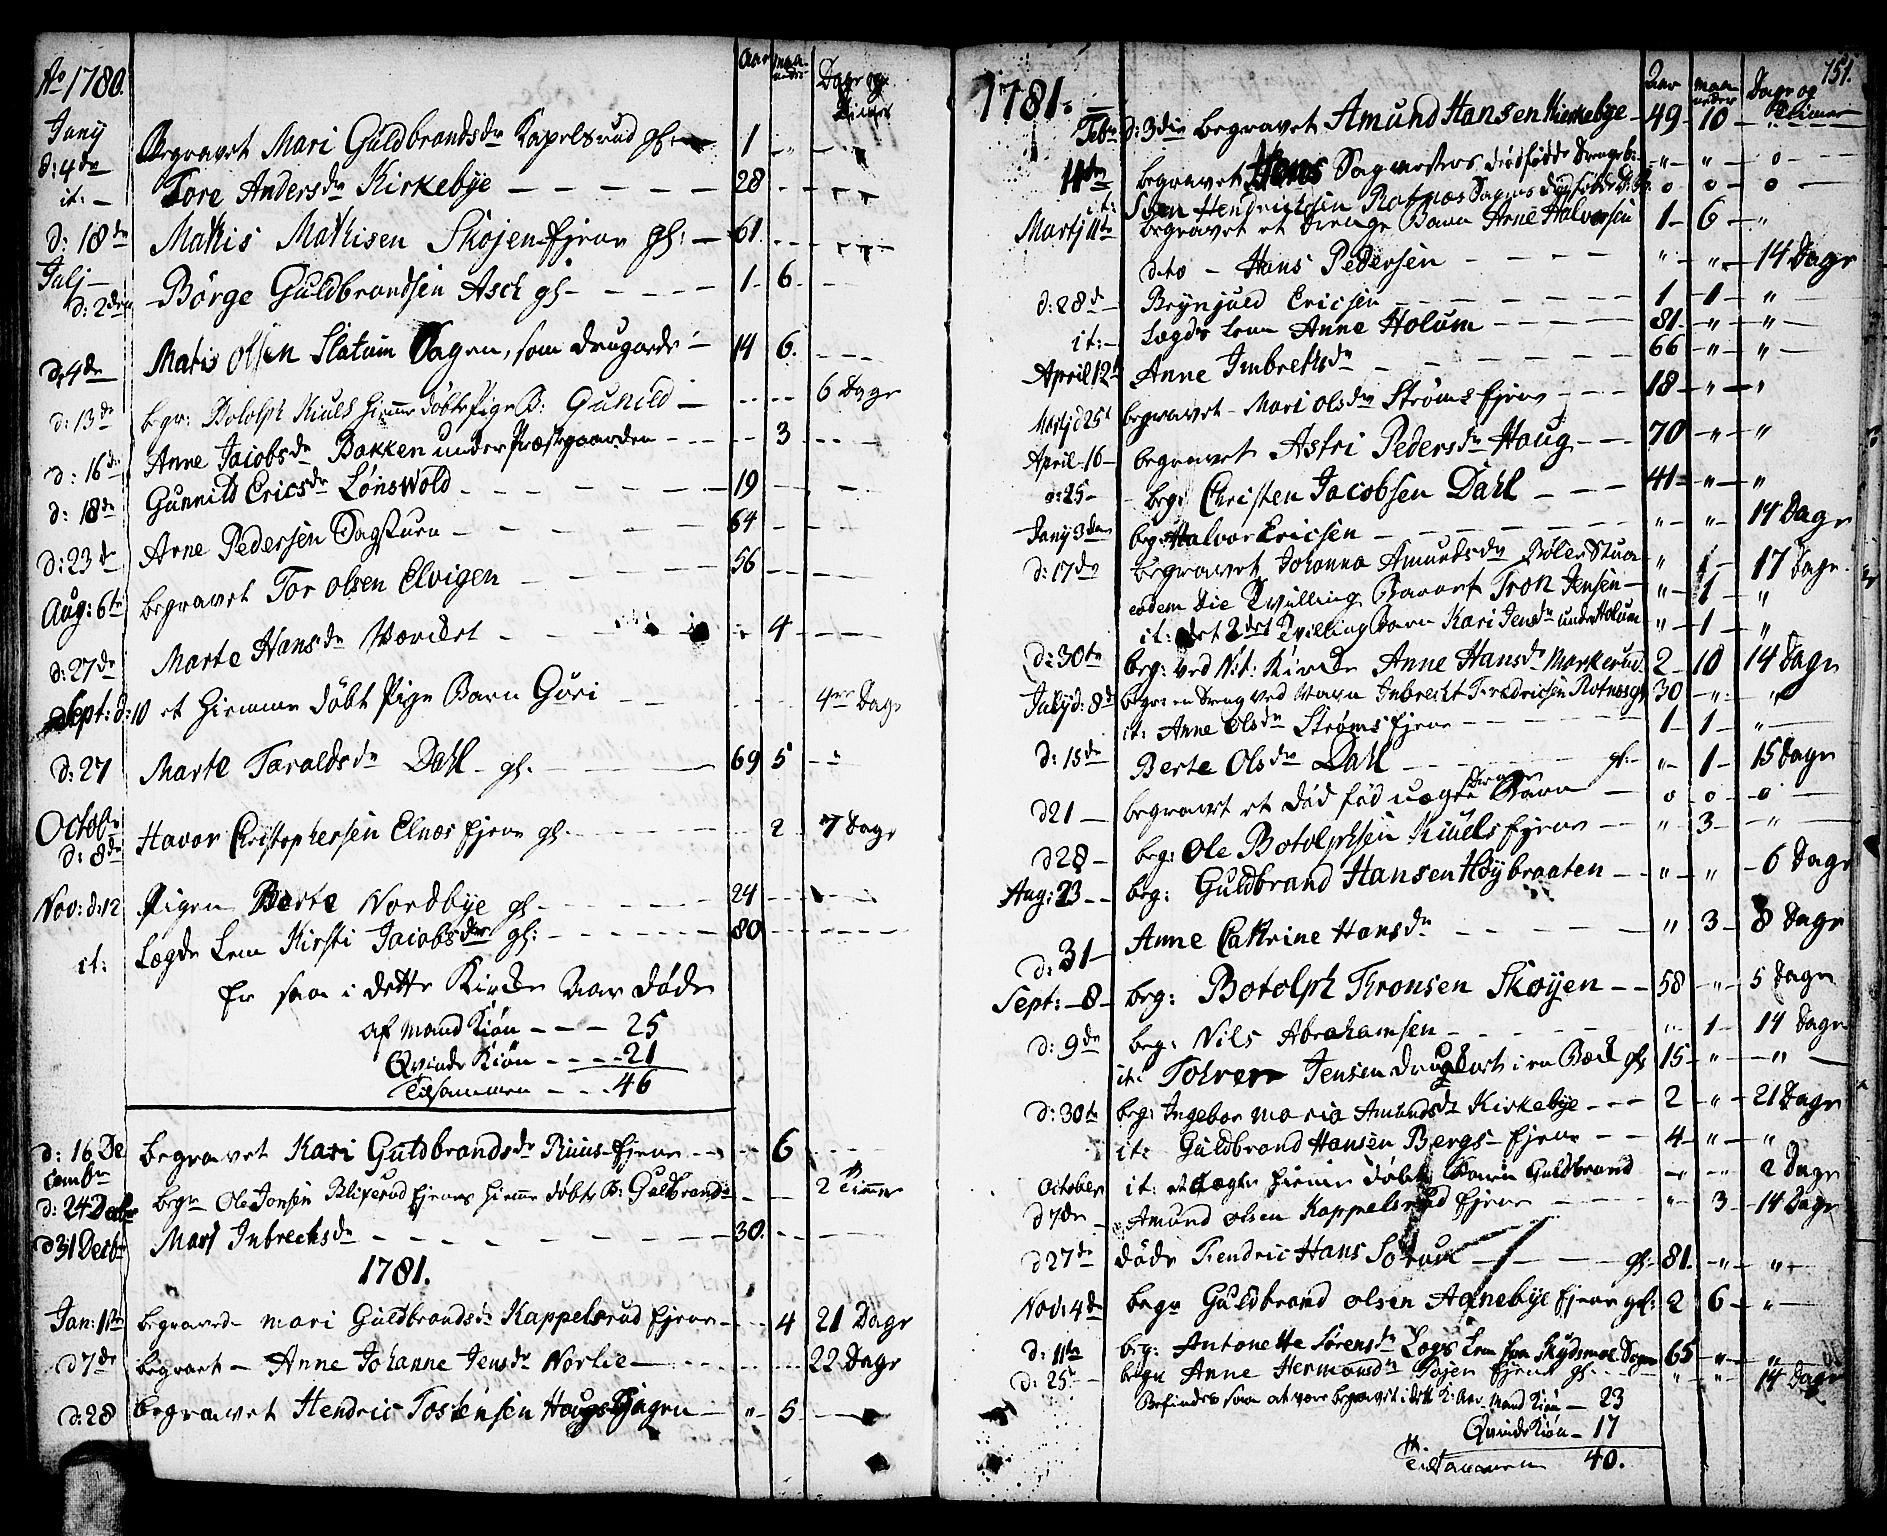 Ao 1780. Aar maaneder Dage og Timer
Juny
d: 4de Begravet Mari Guldbrandsdr Kapelsrud 1
it: Tore Andersdr Kirkebye 28
d: 18de Mathis Mathisen Skøjen Ejene gl: 61
Julj
d: 2den Börge Guldbrandsen Asch gl 1 6
d: 4de Matis Olsen Slatum Hagen, som drugnede 14 6
d: 13de begr: Bolofh Kiuls hiemme døbte Pige B: Gunild 6 Dage
d: 16de Anne Jacobsdr Bakken under Præstegaarden 3
d: 18de Gunnild Ericsdr Lønswold 19
d: 23de Arne Pedersen Dagsturn 64
Aug: 6te begravet Tor Olsen Elvigen 56
d: 27de Marte Hansdr 4
Sept: d: 10 et hiemme døbt Pige Barn Guri 4re Dage
d: 27 Marte Taraldsdr Dahl gl. 69 5
Octobr
d: 8de Havor Christophersen Elnæs Ejene gl. 2 7 Dage
Nov: d: 12 Pigen Berte Nordbye gl 24
it: Lægds Lem Kirsti Jacobsdtr gl: 80
Er saa i dette Kirke Aar døde
af Mand Kiön 25
Qvinde Kiön 21
Tilsammen 46
d: 16 De
cembr begravet Kari Guldbrandsdr Ruus Ejene 6
d: 24 Decbr begr Ole Jonsen Ejenes hiemme døbte B: Guldbrand 2 Timer
d 31 Decbr Mari Inbrechsdr 30.
1781.
Jan: 1te begraved mari Guldbrandsdr Kappelsrud Ejene 4 21 Dage
d 7de begravet Anne Johanne Jensdr Norlie 22 Dage
d: 28 begravet Hendric Tostensen Hougs Hagen 5
1781: Aar maaneder Dage og Timer 151.
Febr: d: 3die begravet Amund Hansen Kirkebye 49 10
11te begravet Hans Sagmesters dødfødde Drengebarn 0
it: Sven Hendricksen Rotnes Sagens dødføde 0 0 0
Martj 11te begravet et Drenge Barn Arne Halvorsen 1 6
dto Hans Pedersen 14 Dage
d: 28de Brynjuld Ericsen 1 1
it: Lægds Lem Anne Holum 81
April 12t Anne Imbrethsdr 66
Martj d 25t begravet Mari Olsdr Strøms Ejene 18
April 16 begravet Astri Pedersdr Houg 70
d: 25 beg: Christen Jacobsen Dahl 41
Juny 3den beg: Halvor Ericsen 14 Dage
d: 17de begravet Johanna Amundsdr Bøler Stuen 1 17 Dage
eodem Die Tvilling Barnet Tron Jensen 1
it: det 2det Tvilling Barn Kari Jensdr under Holum 1
d: 30te beg: ved Nit: Kirke Anne Hansdr Markerud 2 10 14 Dage
July d: 8d begr: en Dreng ved Navn Inbrecht Fredricsen Rotnes gl 30
it: Anne Olsdr Strøms Ejene 1 1
d: 15de Berte Olsdr Dahl gl: 1 15 Dage
d 21 begravet et død fød uægte Drenge Barn 0 0 0
d 28 beg: Ole Botolphsen Kiuels Ejene 3
Aug: 23 beg: Guldbrand Hansen Høybraaten 6 Dage
d: 31 Anne Cattrine Hansdr 3 8 Dage
Sept: 8 beg: Botolph Tronsen Skøyen 58 5 Dage
d: 9de beg: Nils Abrahamsen 1 14 Dage
it: Tolver Jensen druknet i en Bæk gl 15
d: 30te beg: Ingebor maria Amundsdr Kirkebye 2 21 Dage
it: Guldbrand Hansen Bergs Ejene 4
October it: et uægte hiemme døbt Barn Guldbrand 2 Dage
d 7de Amund Olsen Kappelsrud Ejene 3 14 Dage
d 27de døde Fendric Hans Sørum gl: 81.
Nov: 4de begr Guldbrand Olsen Aanebye Ejene gl: 2 6
d: 11te beg: Antonette Sørensdr Legs Lem fra Skydsmoe 65
d: 25 begr Anne Hermandsdr Ejene gl. 14 Dage
Befindes saa at være begravet i dette K: Aar Mand Kiön 23
Qvinde Kiön 17
Tilsammen 40.